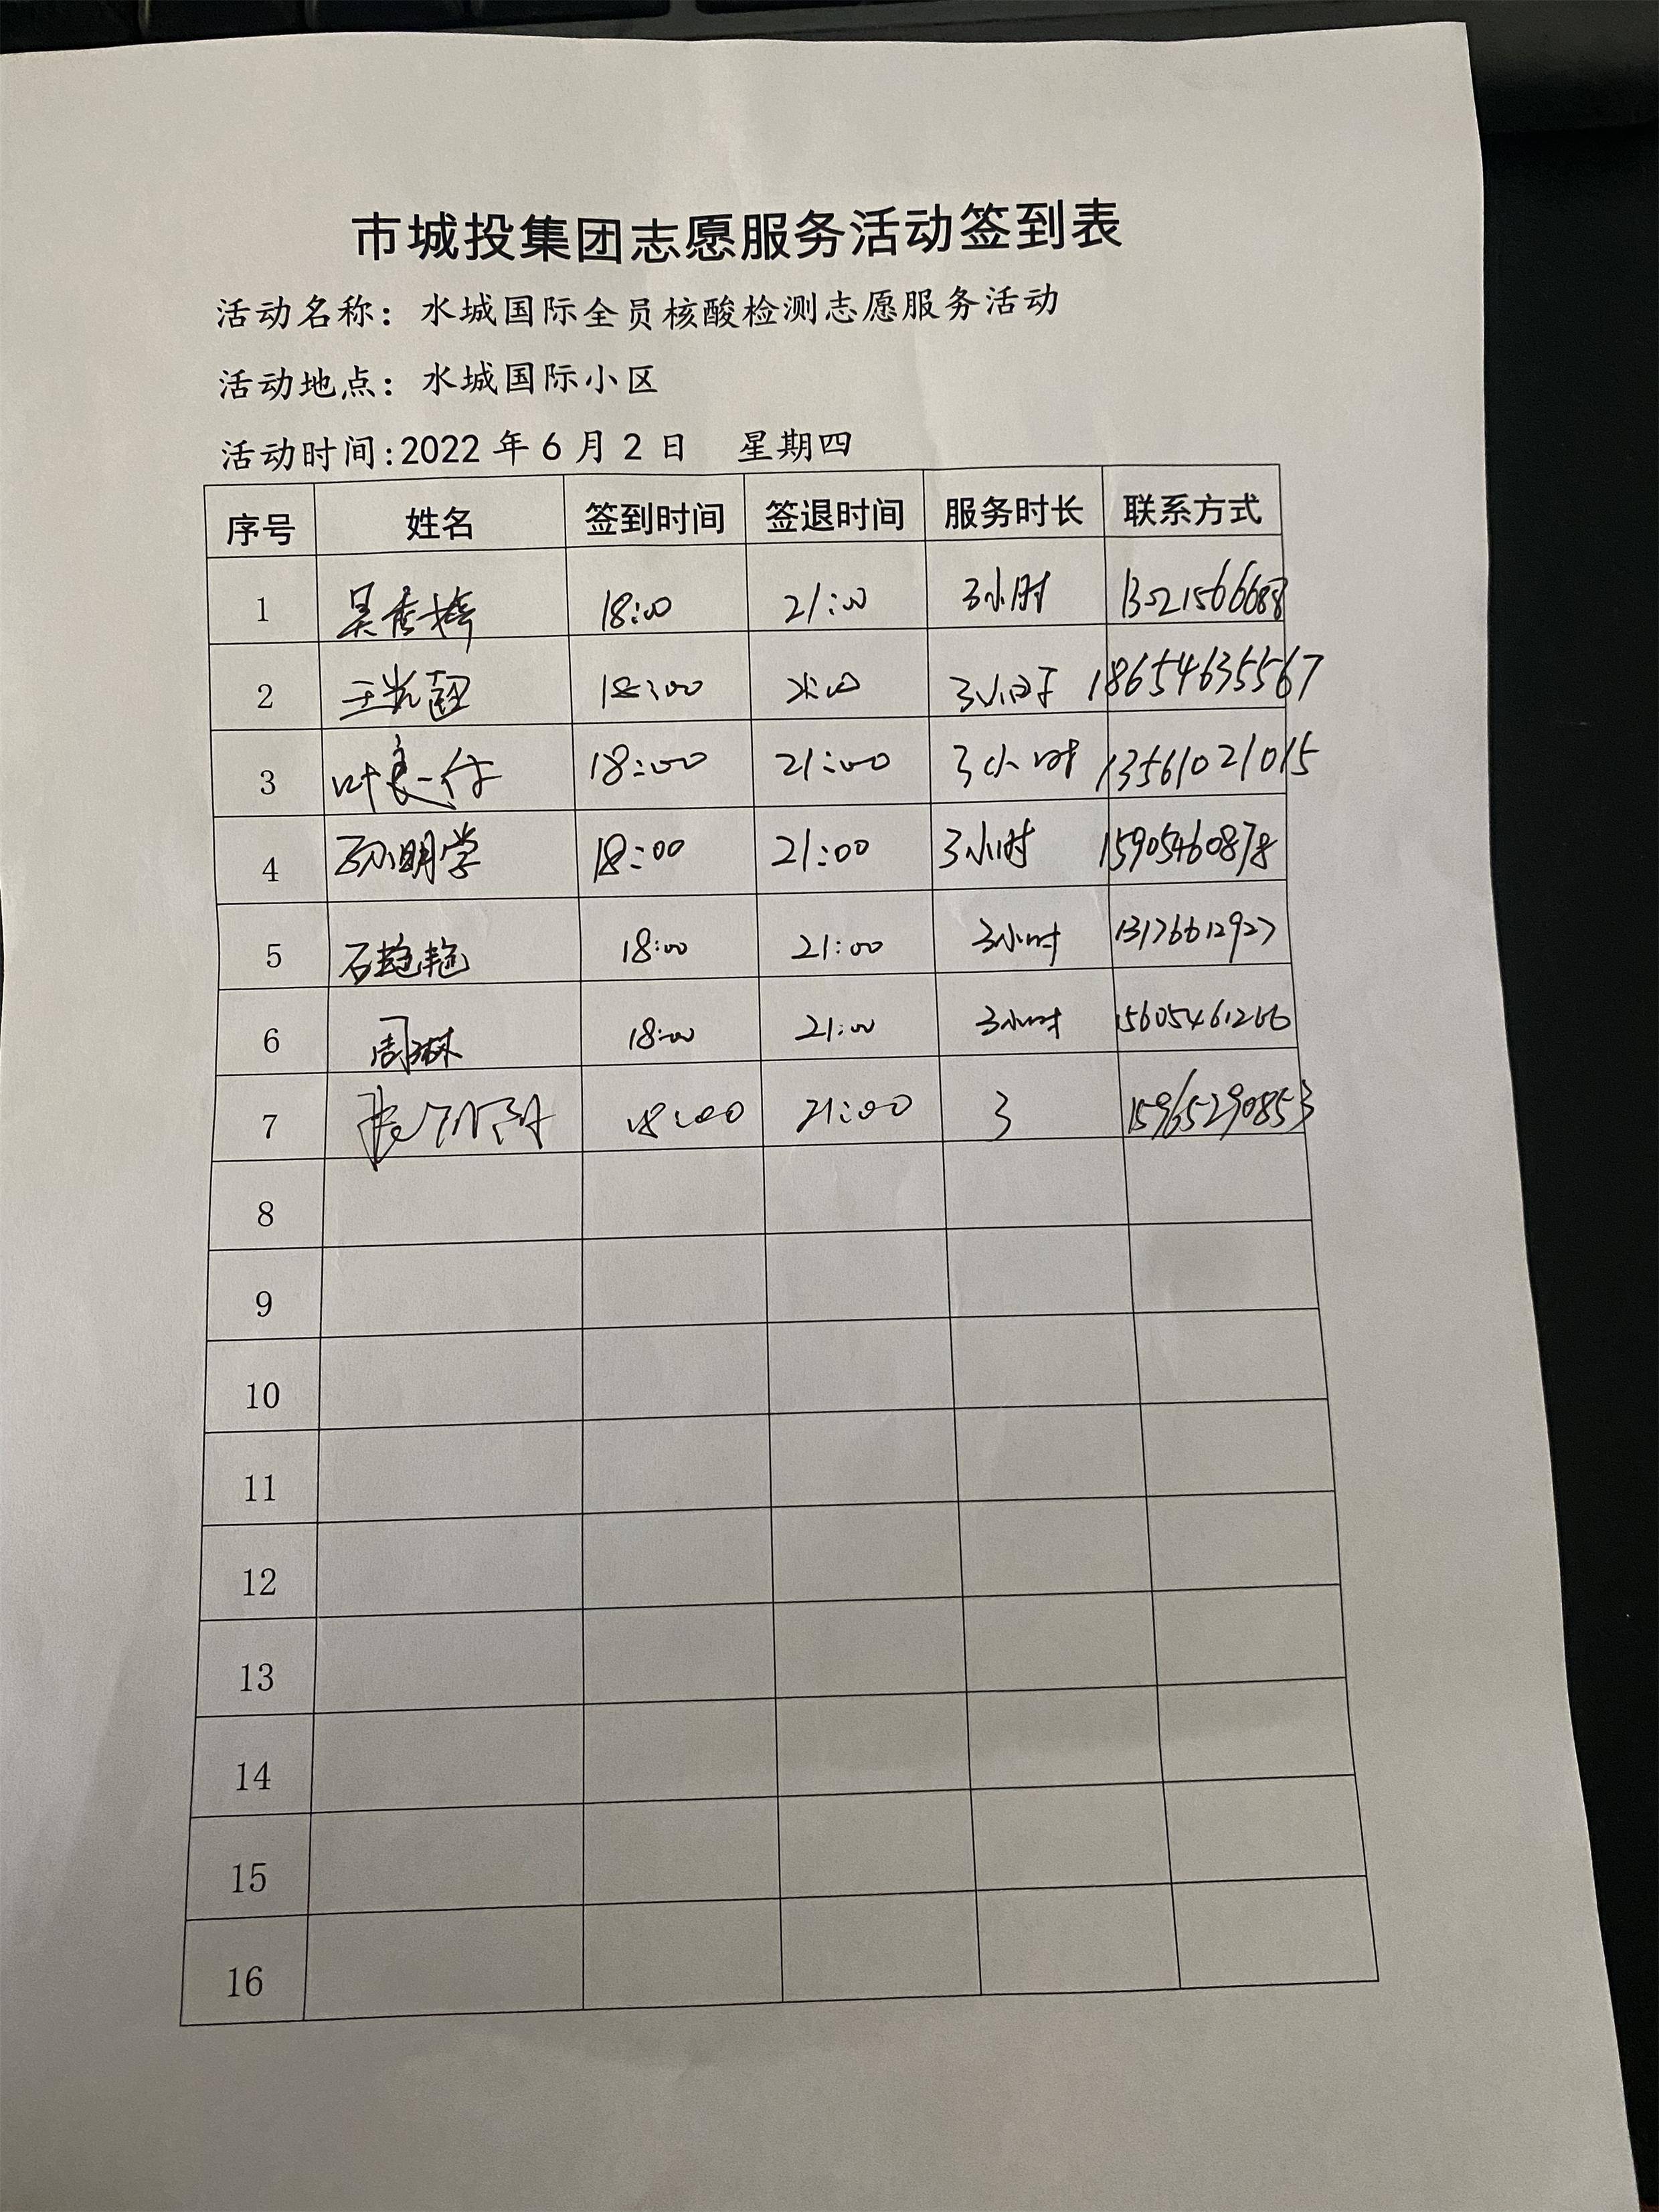 市城投集团志愿服务活动签到表
活动名称：水城国际全员核酸检测志愿服务活动
活动地点：水城国际小区
活动时间:2022 年 6 月 2 日 星期四
序号 姓名 签到时间 签退时间 服务时长 联系方式
1 18:00 21:00 3小时
2 18:00 21:00 3小时 18654635567
3 18:00 21:00 3小时 13561021015
4 孙明学 18:00 21:00 3小时 15905460878
5 石艳艳 18:00 21:00 3小时 13176612927
6 周琳 18:00 21:00 3小时 15605461266
7 18:00 21:00 3 15965290853
8
9
10
11
12
13
14
15
16